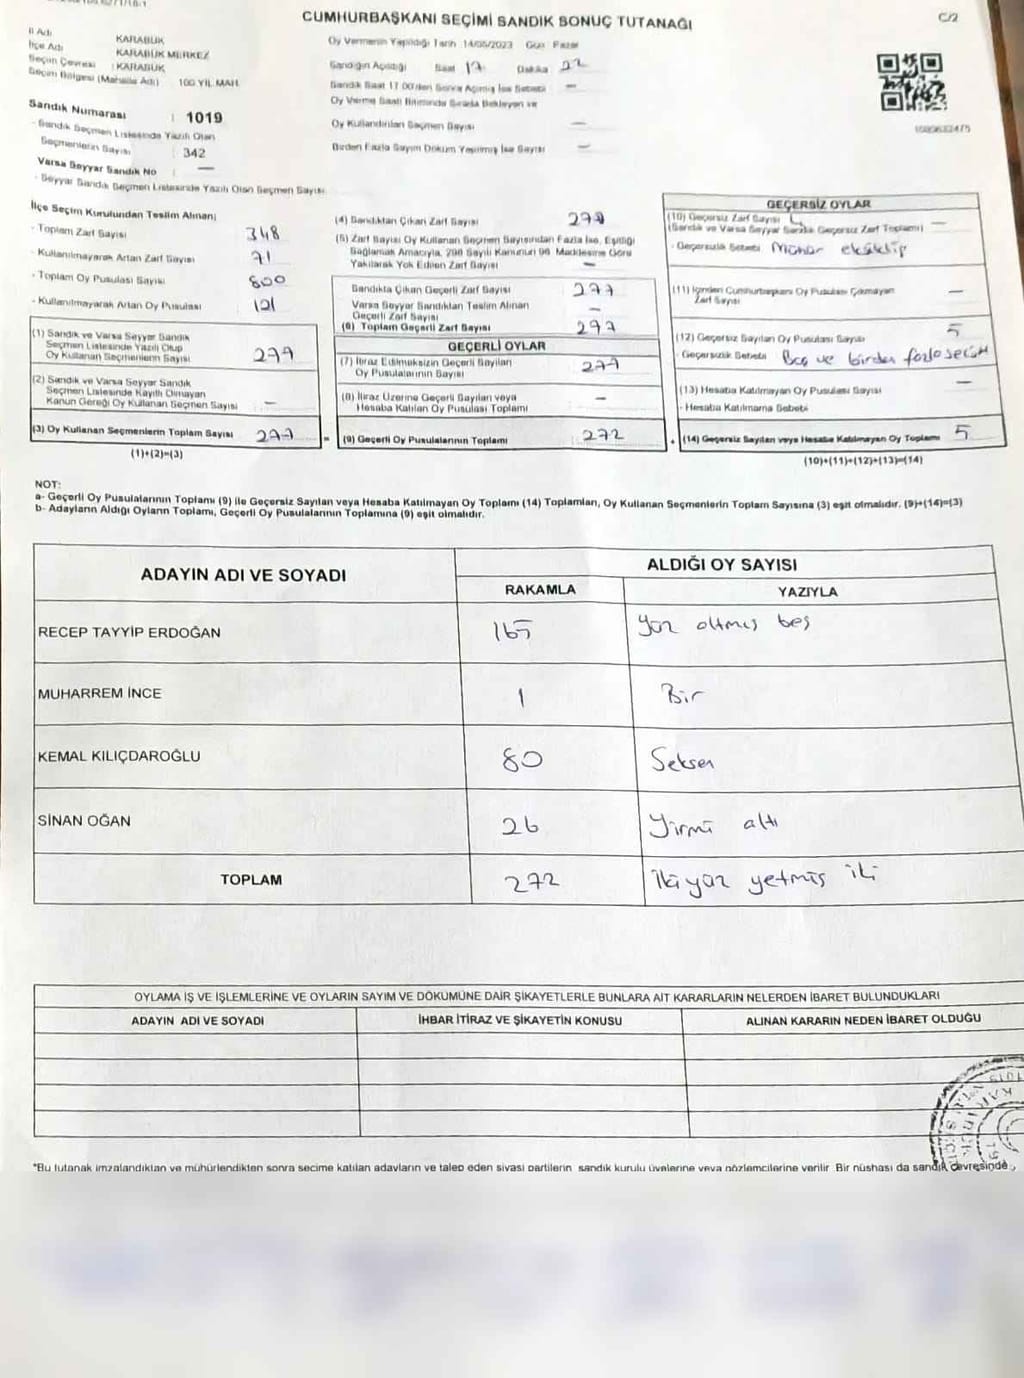 CUMHURBAŞKANI SEÇİMİ SANDIK SONUÇ TUTANAĞI
C/2
İl Adı KARABÜK
İlçe Adı KARABÜK MERKEZ
Seçim Çevresi : KARABÜK
Seçim Bölgesi (Mahalle Adı) 100 YIL MAH.
Sandık Numarası : 1019
- Sandık Seçmen Listesinde Yazılı Olan
Seçmenlerin Sayısı : 342
Varsa Seyyar Sandık No : —
- Seyyar Sandık Seçmen Listesinde Yazılı Olan Seçmen Sayısı
Oy Vermenin Yapıldığı Tarih 14/05/2023 Gün Pazar
Sandığın Açıldığı Saat 17 Dakika 22
Sandık Saat 17.00'den Sonra Açılmış İse Sebebi —
Oy Verme Saati Bitiminde Sırada Bekleyen ve
Oy Kullandırılan Seçmen Sayısı —
Birden Fazla Sayım Döküm Yapılmış İse Sayısı —
İlçe Seçim Kurulundan Teslim Alınan;
- Toplam Zarf Sayısı 348
- Kullanılmayarak Artan Zarf Sayısı 71
- Toplam Oy Pusulası Sayısı 800
- Kullanılmayarak Artan Oy Pusulası 121
(1) Sandık ve Varsa Seyyar Sandık
Seçmen Listesinde Yazılı Olup
Oy Kullanan Seçmenlerin Sayısı 277
(2) Sandık ve Varsa Seyyar Sandık
Seçmen Listesinde Kayıtlı Olmayan
Kanun Gereği Oy Kullanan Seçmen Sayısı —
(3) Oy Kullanan Seçmenlerin Toplam Sayısı 277
(1)+(2)=(3)
(4) Sandıktan Çıkan Zarf Sayısı 277
(5) Zarf Sayısı Oy Kullanan Seçmen Sayısından Fazla İse, Eşitliği
Sağlamak Amacıyla, 298 Sayılı Kanunun 98. Maddesine Göre
Yakılarak Yok Edilen Zarf Sayısı —
Sandıkta Çıkan Geçerli Zarf Sayısı 277
Varsa Seyyar Sandıktan Teslim Alınan
Geçerli Zarf Sayısı —
(6) Toplam Geçerli Zarf Sayısı 277
GEÇERLİ OYLAR
(7) İtiraz Edilmeksizin Geçerli Sayılan
Oy Pusulalarının Sayısı 277
(8) İtiraz Üzerine Geçerli Sayılan veya
Hesaba Katılan Oy Pusulası Toplamı —
= (9) Geçerli Oy Pusulalarının Toplamı 272
GEÇERSİZ OYLAR
(10) Geçersiz Zarf Sayısı —
(Sandık ve Varsa Seyyar Sandık Geçersiz Zarf Toplamı)
- Geçersizlik Sebebi Mühür eksiklip
(11) İçinden Cumhurbaşkanı Oy Pusulası Çıkmayan
Zarf Sayısı —
(12) Geçersiz Sayılan Oy Pusulası Sayısı 5
- Geçersizlik Sebebi Boş ve birden fazla
(13) Hesaba Katılmayan Oy Pusulası Sayısı —
- Hesaba Katılmama Sebebi
+ (14) Geçersiz Sayılan veya Hesaba Katılmayan Oy Toplamı 5
(10)+(11)+(12)+(13)=(14)
NOT:
a- Geçerli Oy Pusulalarının Toplamı (9) ile Geçersiz Sayılan veya Hesaba Katılmayan Oy Toplamı (14) Toplamları, Oy Kullanan Seçmenlerin Toplam Sayısına (3) eşit olmalıdır. (9)+(14)=(3)
b- Adayların Aldığı Oyların Toplamı, Geçerli Oy Pusulalarının Toplamına (9) eşit olmalıdır.
ADAYIN ADI VE SOYADI
ALDIĞI OY SAYISI
RAKAMLA YAZIYLA
RECEP TAYYİP ERDOĞAN 165 Yüz altmış beş
MUHARREM İNCE 1 Bir
KEMAL KILIÇDAROĞLU 80 Seksen
SİNAN OĞAN 26 Yirmi altı
TOPLAM 272 İki yüz yetmiş iki
OYLAMA İŞ VE İŞLEMLERİNE VE OYLARIN SAYIM VE DÖKÜMÜNE DAİR ŞİKAYETLERLE BUNLARA AİT KARARLARIN NELERDEN İBARET BULUNDUKLARI
ADAYIN ADI VE SOYADI İHBAR İTİRAZ VE ŞİKAYETİN KONUSU ALINAN KARARIN NEDEN İBARET OLDUĞU
*Bu tutanak imzalandıktan ve mühürlendikten sonra seçime katılan adayların ve talep eden siyasi partilerin sandık kurulu üyelerine veya gözlemcilerine verilir. Bir nüshası da sandık çevresinde